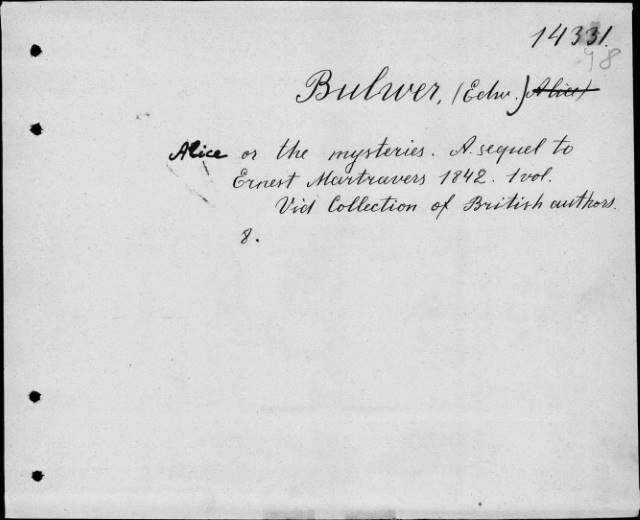 14331.
98
Bulwer, (Edw.) Alice)
Alice or the mysteries. A sequel to
Ernest Martravers 1842. 1 vol.
Vid Collection of British authors.
8.